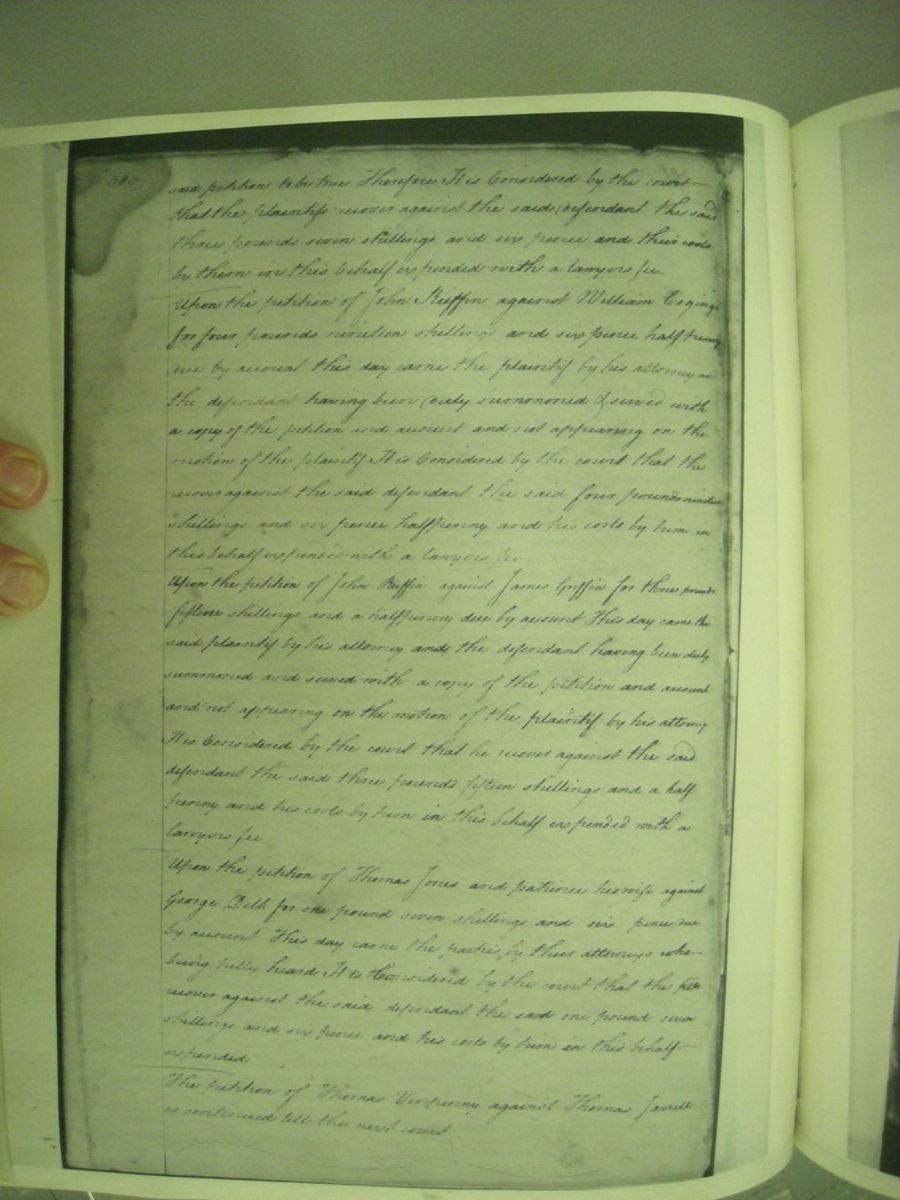 313
said petition to be true Therefore It is Considered by the court
that the plaintifs recover against the said Defendant the said
three pounds seven shillings and six pence and their costs
by them in this behalf expended with a lawyers fee.
Upon the petition of John Ruffin against William Cogings
for four pounds nineteen shillings and six pence halfpenny
due by account this day came the plaintif by his attorney and
the defendant having been duly summononed & served with
a copy of the petition and account and not appearing on the
motion of the plaintif It is Considered by the court that the
recover against the said defendant the said four pounds nineteen
shillings and six pence halfpenny and his costs by him in
this behalf expended with a lawyers fee
Upon the petition of John Ruffin against James Griffin for three pounds
fifteen shillings and a halfpenny due by account This day came the
said plaintif by his attorney and the defendant having been duly
summoned and served with a copy of the petition and account
and not appearing on the motion of the plaintif by his attorney
It is Considered by the court that he recover against the said
defendant the said three pounds fifteen shillings and a half
penny and his costs by him in this behalf expended with a
lawyers fee
Upon the petition of Thomas Jones and patience his wife against
George Bell for one pound seven shillings and six pence due
by account This day came the parties by their attorneys who
being fully heard It is Considered by the court that the
recover against the said defendant the said one pound seven
shillings and six pence and his costs by him in this behalf
expended
The petition of Thomas against Thomas Jarrell
is continued till the next court